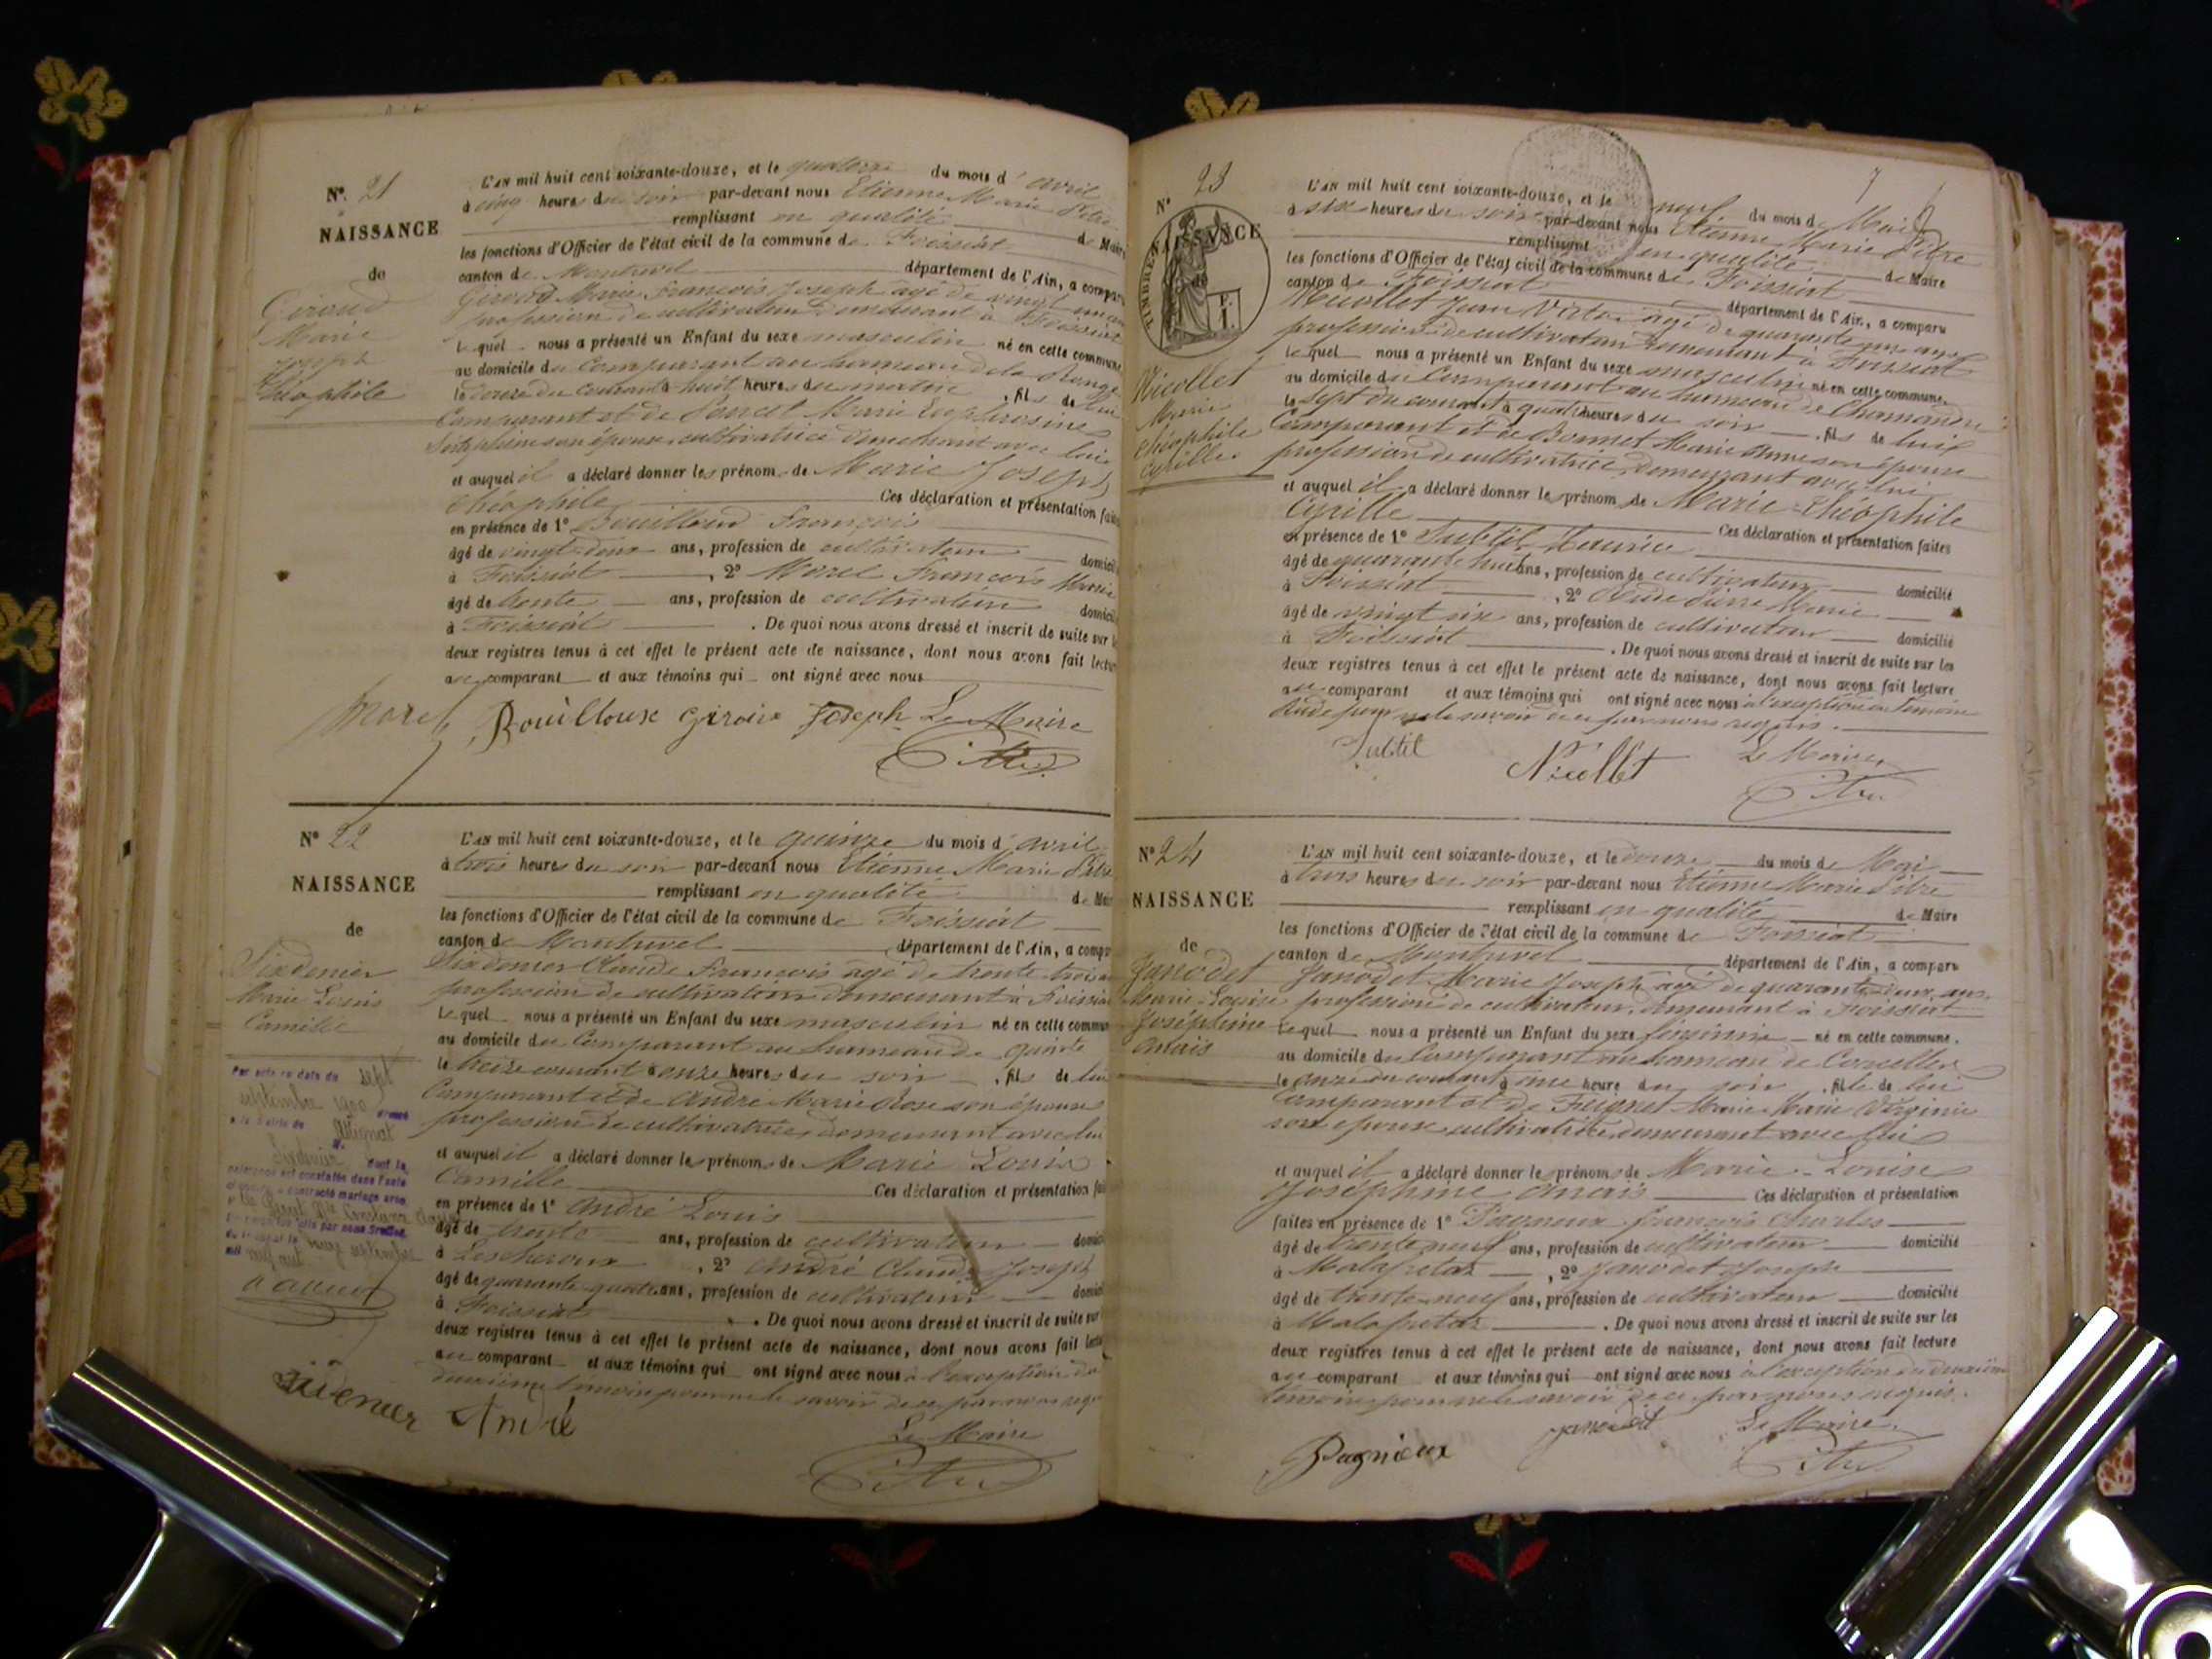 Nº. 21
NAISSANCE
de
Giroud
Marie
Joseph
Théophile
L'AN mil huit cent soixante-douze, et le quatorze du mois d'avril
à cinq heures du soir par-devant nous Etienne Marie Pitre
remplissant en qualité de Maire
les fonctions d'Officier de l'état civil de la commune de Foissiat
canton de Montrevel département de l'Ain, a comparu
Giroud Marie François Joseph âgé de vingt
profession de cultivateur demeurant à Foissiat
Lequel nous a présenté un Enfant du sexe masculin né en cette commune
au domicile du Comparant au hameau de la
le douze du courant à huit heures du matin, fils de lui
Comparant et de Poncet Marie Euphrosine
son épouse cultivatrice demeurant avec lui
et auquel il a déclaré donner les prénoms de Marie Joseph
Théophile Ces déclaration et présentation faites
en présence de 1º Bouilloud François
âgé de vingt-deux ans, profession de cultivateur domicilié
à Foissiat, 2º Morel François Marie
âgé de trente ans, profession de cultivateur domicilié
à Foissiat. De quoi nous avons dressé et inscrit de suite sur les
deux registres tenus à cet effet le présent acte de naissance, dont nous avons fait lecture
au comparant et aux témoins qui ont signé avec nous
Morel Bouilloux Giroud Joseph Le Maire
Pitre
Nº 22
NAISSANCE
de
Sixdenier
Marie Louis
Camille
Par acte en date du sept
septembre 1900 dressé
à la Mairie de Attignat
M.
Sixdenier dont la
naissance est constatée dans l'acte
ci-contre a contracté mariage avec
L'AN mil huit cent soixante-douze, et le quinze du mois d'avril
à trois heures du soir par-devant nous Etienne Marie Pitre
remplissant en qualité de Maire
les fonctions d'Officier de l'état civil de la commune de Foissiat
canton de Montrevel département de l'Ain, a comparu
Sixdenier Claude François âgé de trente trois ans
profession de cultivateur demeurant à Foissiat
Lequel nous a présenté un Enfant du sexe masculin né en cette commune
au domicile du Comparant au hameau de
le treize courant à onze heures du soir, fils de lui
Comparant et de André Marie Rose son épouse
profession de cultivatrice, demeurant avec lui
et auquel il a déclaré donner les prénoms de Marie Louis
Camille Ces déclaration et présentation faites
en présence de 1º André Louis
âgé de trente ans, profession de cultivateur domicilié
à Lescheroux, 2º André Claude Joseph
âgé de quarante quatre ans, profession de cultivateur domicilié
à Foissiat. De quoi nous avons dressé et inscrit de suite sur les
deux registres tenus à cet effet le présent acte de naissance, dont nous avons fait lecture
au comparant et aux témoins qui ont signé avec nous à l'exception du
deuxième témoin pour ne le savoir de ce par nous requis
Sixdenier André Le Maire
Pitre
Nº 23
NAISSANCE
TIMBRE
Nicollet
Marie
Théophile
Cyrille
7
L'AN mil huit cent soixante-douze, et le neuf du mois de Mai
à six heures du soir par-devant nous Etienne Marie Pitre
remplissant en qualité de Maire
les fonctions d'Officier de l'état civil de la commune de Foissiat
canton de Foissiat département de l'Ain, a comparu
Nicollet Jean Victor âgé de quarante un ans
profession de cultivateur demeurant à Foissiat
Lequel nous a présenté un Enfant du sexe masculin né en cette commune,
au domicile du Comparant au hameau de Chamandre
le sept du courant à quatre heures du soir, fils de lui
Comparant et de Bonnet Marie Anne son épouse
profession de cultivatrice, demeurant avec lui
et auquel il a déclaré donner les prénom de Marie-Théophile
Cyrille Ces déclaration et présentation faites
en présence de 1º Subtil Maurice
âgé de quarante huit ans, profession de cultivateur domicilié
à Foissiat, 2º Pierre Marie
âgé de vingt six ans, profession de cultivateur domicilié
à Foissiat. De quoi nous avons dressé et inscrit de suite sur les
deux registres tenus à cet effet le présent acte de naissance, dont nous avons fait lecture
au comparant et aux témoins qui ont signé avec nous à l'exception du témoin
pour ne le savoir de ce par nous requis.
Subtil Nicollet Le Maire
Pitre
Nº 24
NAISSANCE
de
Janodet
Marie-Louise
Joséphine
Anaïs
L'AN mil huit cent soixante-douze, et le douze du mois de Mai
à trois heures du soir par-devant nous Etienne Marie Pitre
remplissant en qualité de Maire
les fonctions d'Officier de l'état civil de la commune de Foissiat
canton de Montrevel département de l'Ain, a comparu
Janodet Marie Joseph âgé de quarante deux ans,
profession de cultivateur, demeurant à Foissiat
Lequel nous a présenté un Enfant du sexe féminin né en cette commune.
au domicile du Comparant au hameau de Corcelles
le onze du courant à une heure du soir, fille de lui
Comparant et de Marie Virginie
son épouse, cultivatrice, demeurant avec lui
et auquel il a déclaré donner les prénoms de Marie-Louise
Joséphine Anaïs Ces déclaration et présentation
faites en présence de 1º Pagneux François Charles
âgé de trente neuf ans, profession de cultivateur domicilié
à Malafretaz, 2º Janodet Joseph
âgé de trente-neuf ans, profession de cultivateur domicilié
à Malafretaz. De quoi nous avons dressé et inscrit de suite sur les
deux registres tenus à cet effet le présent acte de naissance, dont nous avons fait lecture
au comparant et aux témoins qui ont signé avec nous à l'exception du deuxième
témoin pour ne le savoir de ce par nous requis.
Pagnieux Janodet Le Maire
Pitre